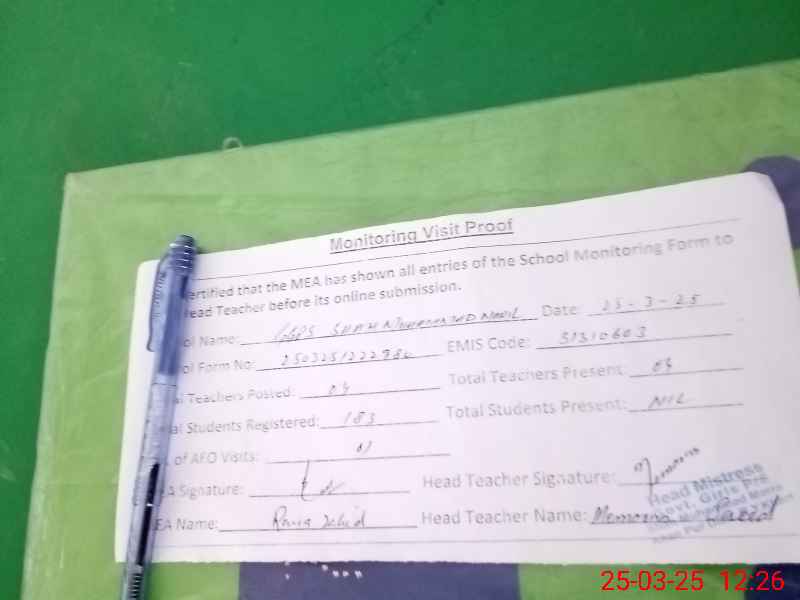 Monitoring Visit Proof
ertified that the MEA has shown all entries of the School Monitoring Form to
ead Teacher before its online submission.
ol Name: GGPS Date: 25-3-25
ol Form No: EMIS Code: 31310603
al Teachers Posted: 04 Total Teachers Present: 04
al Students Registered: 183 Total Students Present: NIL
of AEO Visits: 01
A Signature: Head Teacher Signature:
EA Name: Head Teacher Name: Memoona
Head Mistress
Govt. Girls P/S
25-03-25 12:26